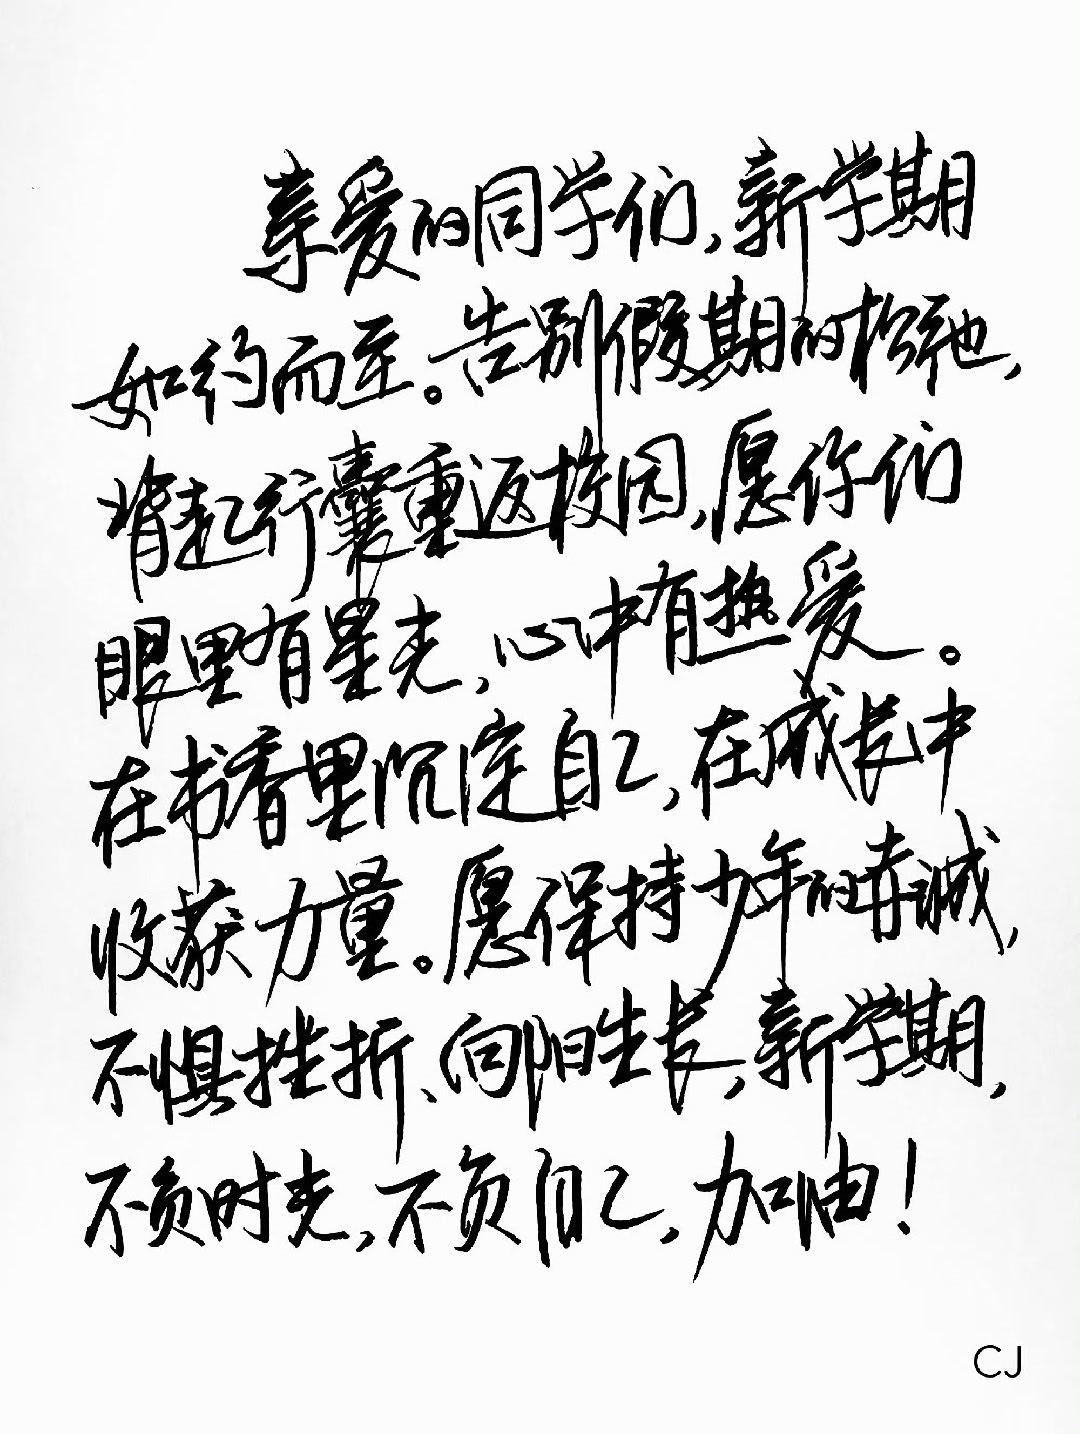 亲爱的同学们,新学期
如约而至。告别假期的松弛,
背起行囊重返校园,愿你们
眼里有星光,心中有热爱。
在书香里沉淀自己,在成长中
收获力量。愿保持少年的赤诚,
不惧挫折、向阳生长,新学期,
不负时光,不负自己,加油!
CJ